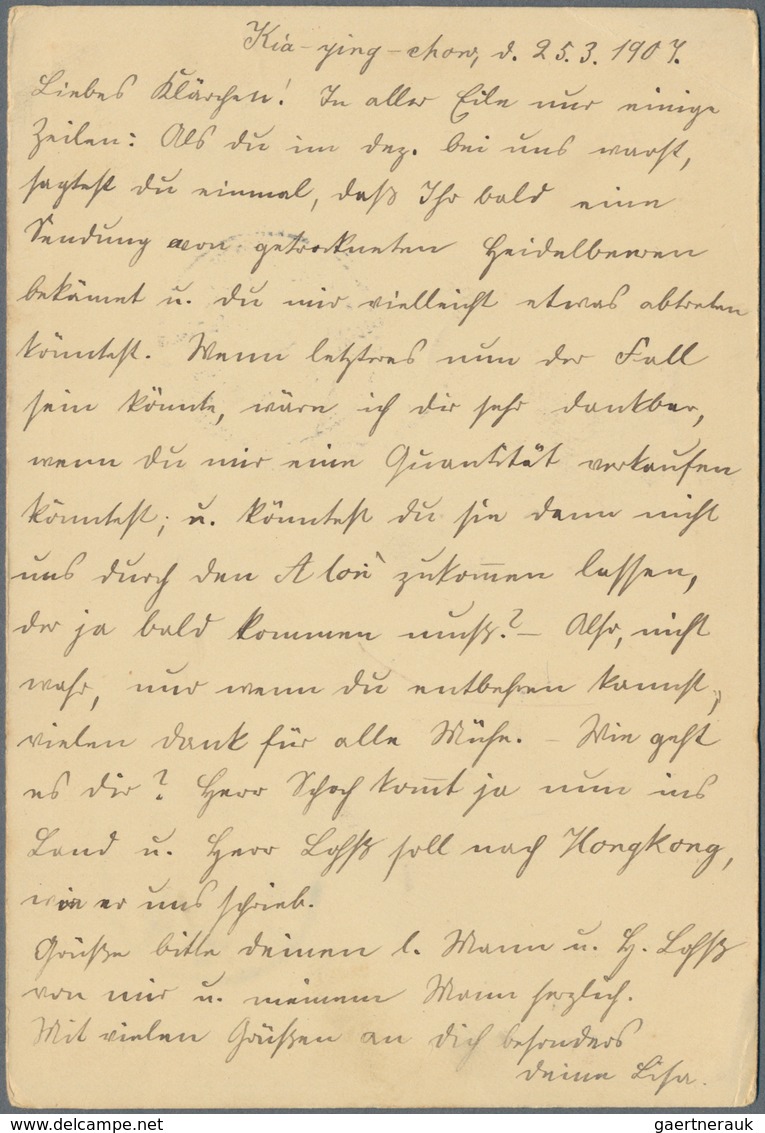 Kia-ying-chow, d. 25.3.1907.
Liebes Klärchen! In aller Eile nur einige
Zeilen: Als du im Dez. bei uns warst,
sagtest du einmal, daß Ihr bald eine
Sendung von getrockneten Heidelbeeren
bekämet u. du mir vielleicht etwas abtreten
könntest. Wenn letzteres nun der Fall
sein könnte, wäre ich dir sehr dankbar,
wenn du mir eine Quantität verkaufen
könntest; u. könntest du sie dann nicht
uns durch den A loi zukom̄en lassen,
der ja bald kommen muß? – Also, nicht
wahr, nur wenn du entbehren kannst,
vielen Dank für alle Mühe. – Wie geht
es dir? Herr Schoch kom̄t ja nun ins
Land u. Herr Lohß soll nach Hongkong,
wie er uns schrieb.
Grüße bitte deinen l. Mann u. H. Lohß
von mir u. meinem Mann herzlich.
Mit vielen Grüßen an dich besonders
deine Lisa.
gaertnerauk